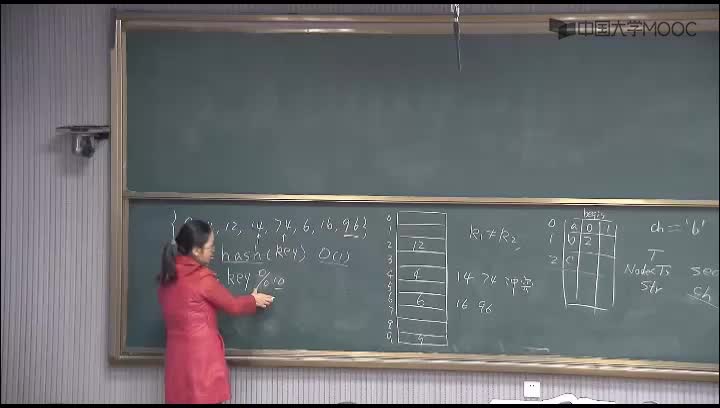 中国大学MOOC
12, 14, 74, 6, 16, 96}
hash(key) O(1)
key % 10
0
1
2 12
3
4 4
5
6 6
7
8
9
k₁≠k₂
14 74 冲突
16 96
begin
0 a 0 1
1 b 2
2 c
ch = 'b'
T
NodesTs
Str
sec
ch